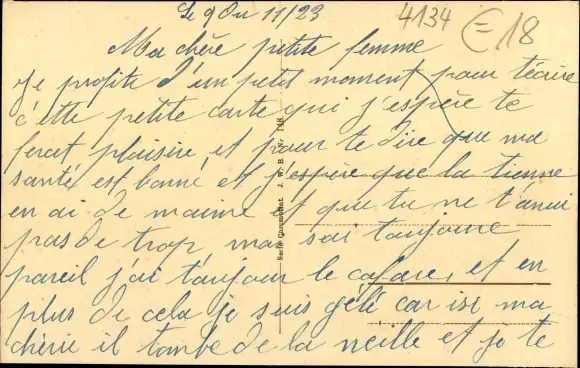 Le 9 Ou 11/23
4134
=18
Ma chère petite femme
Je profite d'un petit moment pour t'écrire
c'ette petite carte qui j'espère te
ferat plaisire, et pour te dire que ma
santé est bonne, et j'espère que la tienne
en ai de maime et que tu ne t'annui
pas de trop, ma soi toujoure
pareil j'ai toujour le cafare, et en
plus de cela je suis gélé car isi ma
chèrie il tombe de la neille et je te
Serie Garçonnent J. v. B. Nr. 118